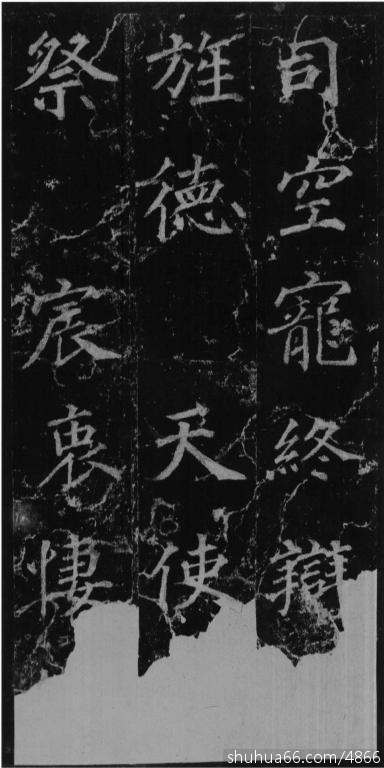 司空寵終辯
旌德 天使
祭 宸衷悽
shuhua66.com/4866